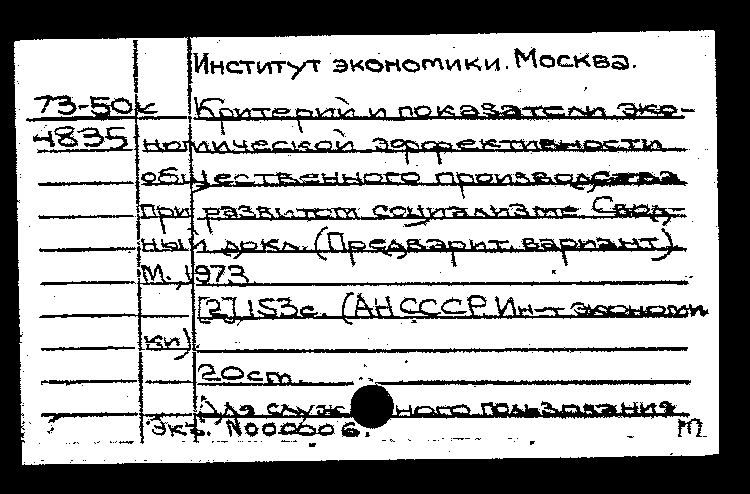 Институт экономики. Москва.
73-50к Критерий и показатели эко-
4835 номической эффективности
общественного производства
при развитом социализме Свод-
ный докл. (Предварит. вариант).
М., 1973
[2], 153с. (АН СССР Ин-т экономи
ки)
20см.
Для служебного пользования
Экз. №000006.
m